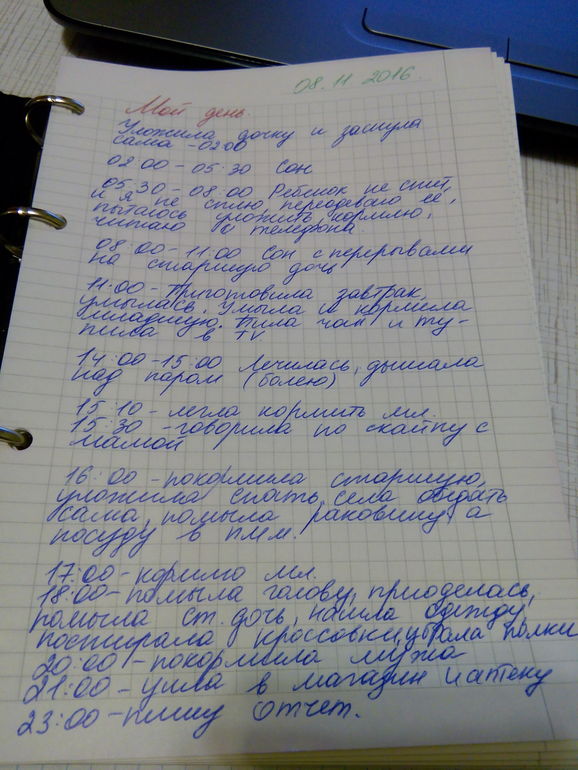 08.11.2016.
Мой день.
Уложила дочку и заснула
сама - 02:00
02:00 - 05:30 Сон
05:30 - 08:00 Ребенок не спит,
и я не сплю, переодеваю её,
пытаюсь уложить, кормлю,
читаю с телефона
08:00 - 11:00 Сон с перерывами
на старшую дочь
11:00 - Приготовила завтрак,
умылась. Умыла и кормила
младшую. Пила чай и ту-
пила в TV
14:00 - 15:00 Лечилась, дышала
над паром (болею)
15:10 - легла кормить мл.
15:30 - говорила по скайпу с
мамой
16:00 - покормила старшую,
уложила спать, села обедать
сама, помыла раковину, а
посуду в пмм.
17:00 - кормлю мл.
18:00 - помыла голову, приоделась,
помыла ст. дочь, нашла одежду,
постирала кроссовки, убрала полки
20:00 - покормила мужа
21:00 - ушла в магазин и аптеку
23:00 - пишу отчет.